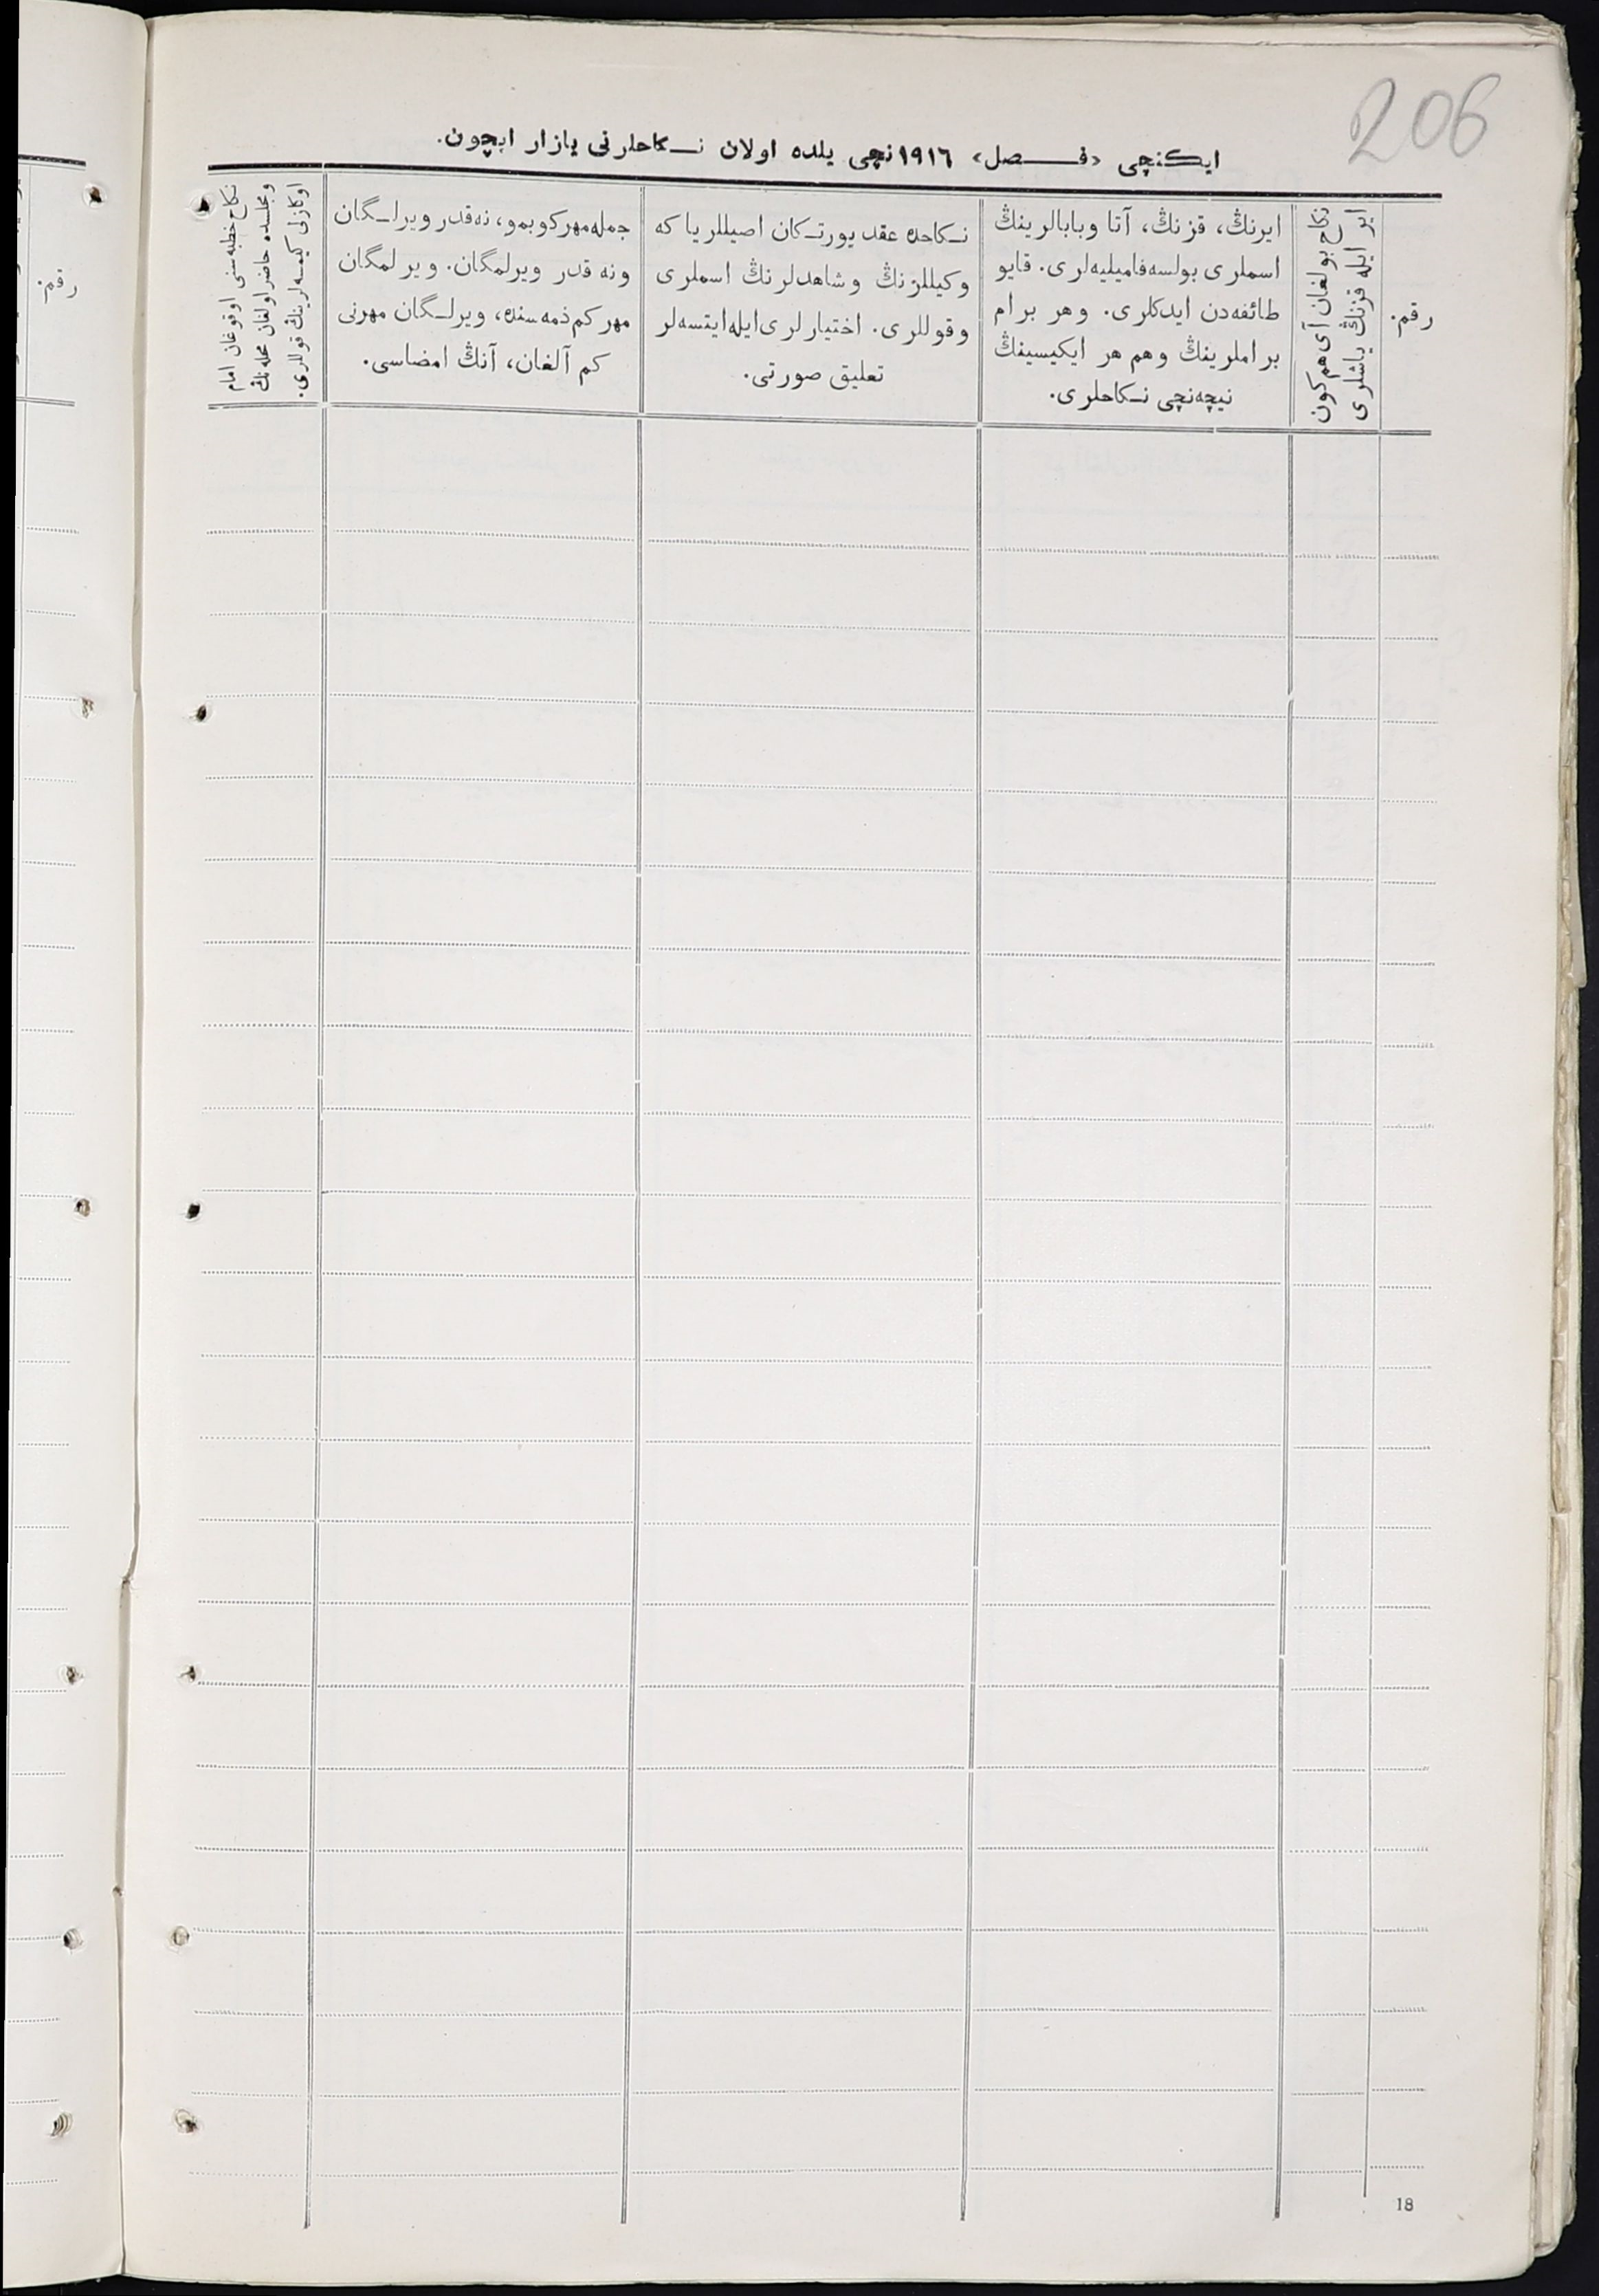 206
ایکنچی «فصل» ١٩١٦نچی یلده اولان نکاحلرنی یازار ایچون.
رقم.
نکاح بولغان آی هم کون
ایر ایله قزنڭ یاشلری
ایرنڭ، قزنڭ، آتا وبابالرینڭ
اسملری بولسه فامیلیه‌لری. قایو
طائفه‌دن ایدکلری. وهر برام
براملرینڭ وهم هر ایکیسینڭ
نیچه‌نچی نکاحلری.
نکاحده عقد یورتکان اصیللر یا که
وکیللرنڭ وشاهدلرنڭ اسملری
وقوللری. اختیارلری ایله ایتسه‌لر
تعلیق صورتی.
جمله مهر کوبمو، نه‌قدر ویرلگان
ونه قدر ویرلمگان. ویرلمگان
مهر کم ذمه‌سنده، ویرلگان مهرنی
کم آلغان، آنڭ امضاسی.
نکاح خطبه‌سنی اوقوغان امام
ومجلسده حاضر اولغان محله‌نڭ
اوکازلی کیمسه‌لرینڭ قوللری.
رقم.
18